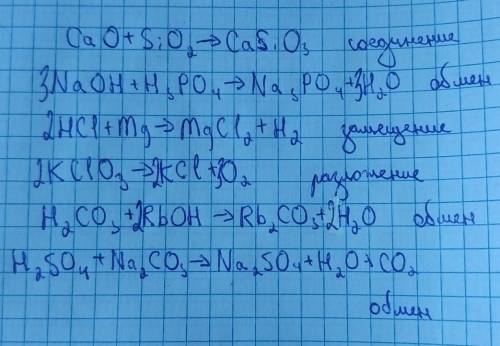 CaO + SiO₂ → CaSiO₃ соединение
3NaOH + H₃PO₄ → Na₃PO₄ + 3H₂O обмен
2HCl + Mg → MgCl₂ + H₂ замещение
2KClO₃ → 2KCl + 3O₂ разложение
H₂CO₃ + 2RbOH → Rb₂CO₃ + 2H₂O обмен
H₂SO₄ + Na₂CO₃ → Na₂SO₄ + H₂O + CO₂
обмен